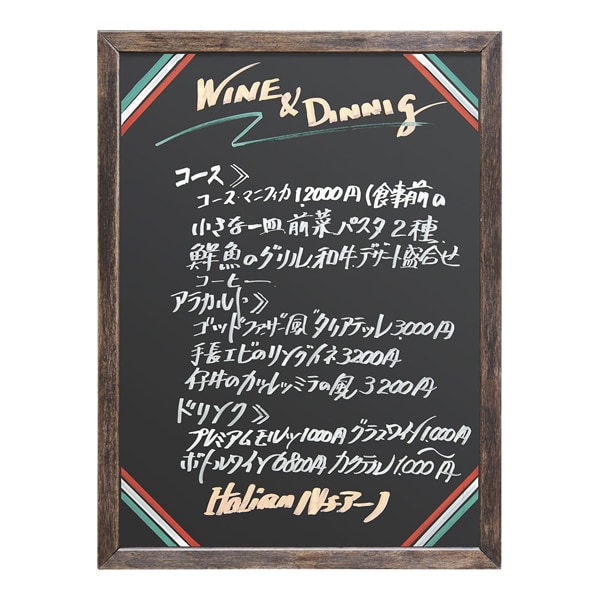 WINE & DINNIG
コース》
コース・マニフィカ 12000円(食事前の
小さな一皿,前菜,パスタ2種
鮮魚のグリル,和牛,デザート盛合せ
コーヒー
アラカルト》
ゴッドファザー風"タリアテッレ 3,000円
手長エビのリングイネ 3200円
仔牛のカツレツミラの風 3200円
ドリンク》
プレミアムモルツ1000円 グラスワイン1000円
ボトルワイン6800円 カクテル1,000〜円
Italian